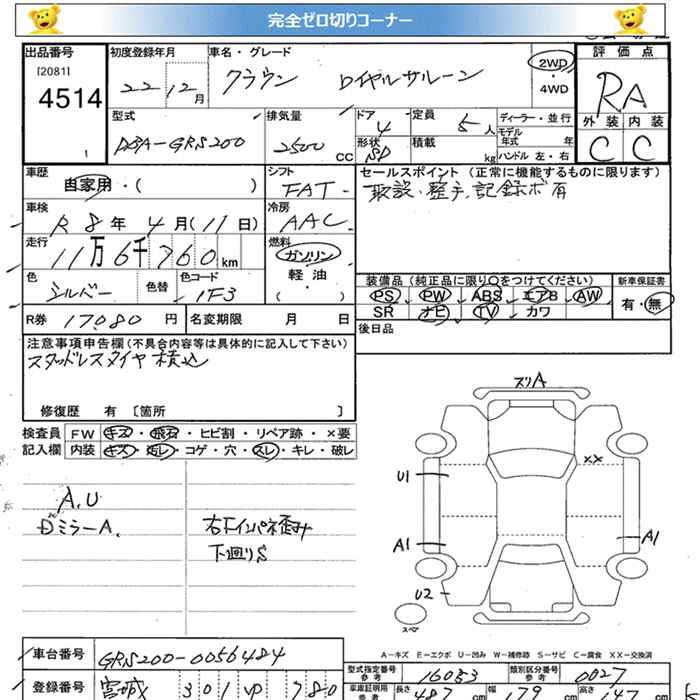 完全ゼロ切りコーナー
出品番号
[2081]
4514
初度登録年月
22 12月
車名・グレード
クラウン ロイヤルサルーン
2WD
・
4WD
評価点
RA
外装 内装
C C
型式
DBA-GRS200
排気量
2500 cc
ドア
4
形状
SD
定員
5人
積載
kg
ディーラー・並行
モデル
年式 年
ハンドル 左・右
車歴
自家用・( )
シフト
FAT
セールスポイント(正常に機能するものに限ります)
取説、整手、記録ボ有
車検
R8年4月(11日)
冷房
AAC
走行
11万6千760km
燃料
ガソリン
軽・油
( )
色
シルバー
色替
色コード
1F3
装備品(純正品に限り○をつけてください)
PS PW ABS エアB AW
SR ナビ TV カワ
新車保証書
有・無
R券 17080円
名変期限 月 日
後日品
注意事項申告欄(不具合内容等は具体的に記入して下さい)
スタッドレスタイヤ積込
修復歴 有 〔箇所 〕
検査員
記入欄
FW キズ・飛石・ヒビ割・リペア跡・×要
内装 キズ・汚レ・コゲ・穴・スレ・キレ・破レ
A.U
Dミラー A.
右下インパネ歪み
下廻りS
スリA
XX
U1
A1
A1
U2
スペア
A-キズ E-エクボ U-凹み W-補修跡 S-サビ C-腐食 XX-交換済
車台番号
GRS200-0056484
型式指定番号
参考
16053
類別区分番号
参考
0027
登録番号
宮城 301 780
車庫証明用
参考
長さ 487 cm
幅 179 cm
高さ 147 cm